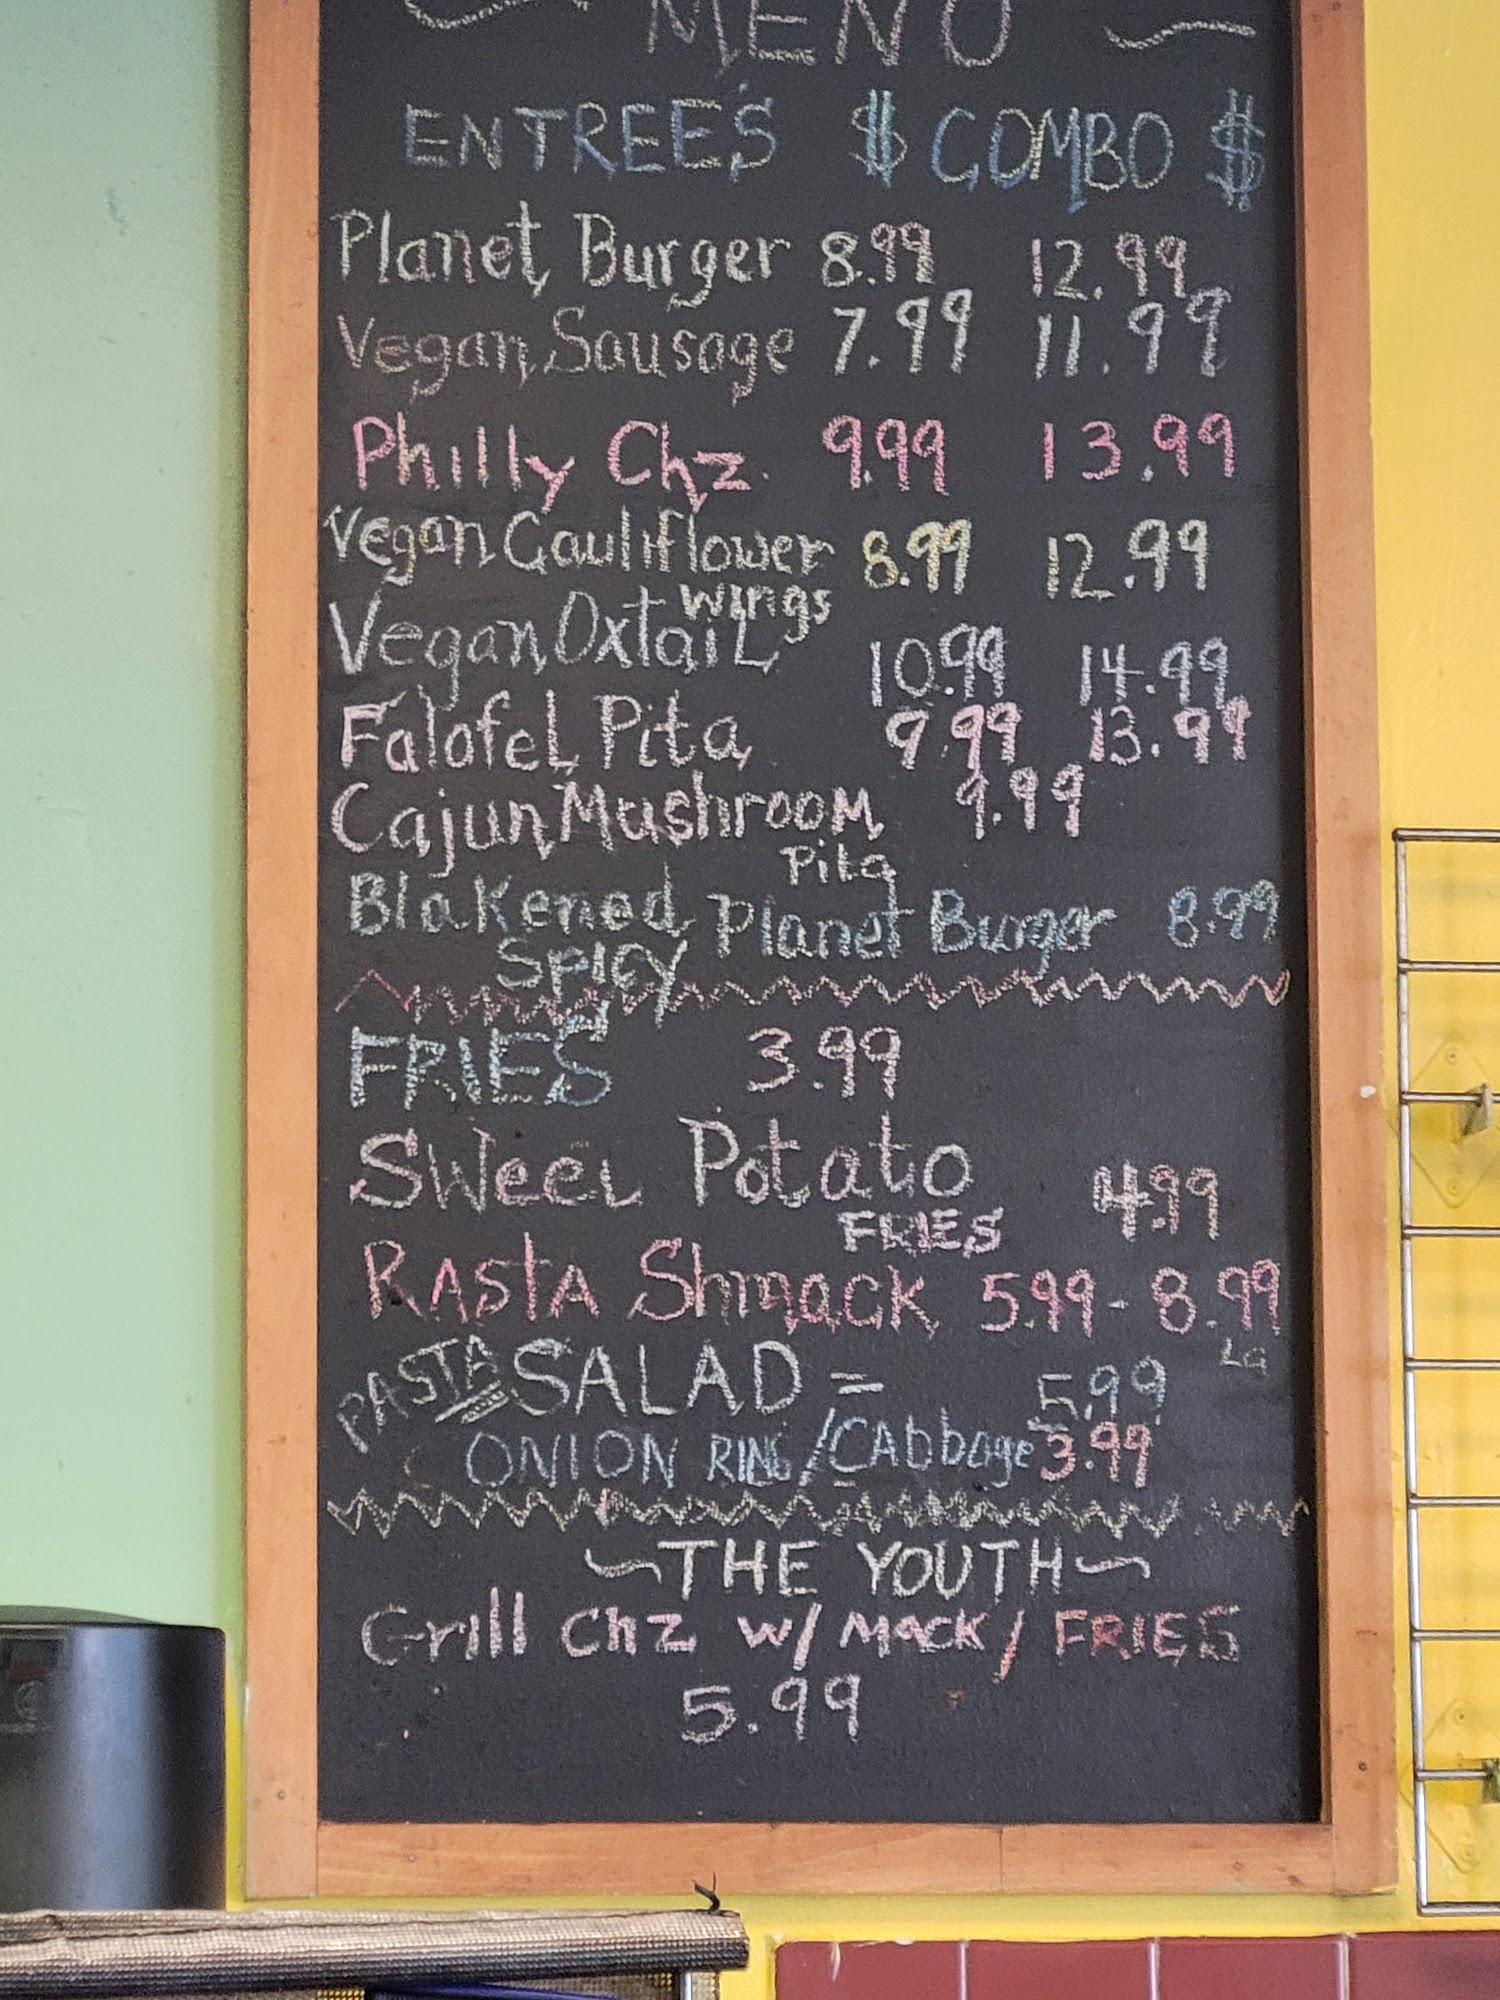 MENU
ENTREE'S $ COMBO $
Planet Burger 8.99 12.99
Vegan Sausage 7.99 11.99
Philly Chz. 9.99 13.99
Vegan Cauliflower 8.99 12.99
wings
Vegan Oxtail 10.99 14.99
Falofel Pita 9.99 13.99
Cajun Mushroom 9.99
Pita
Blakened Planet Burger 8.99
SPICY
FRIES 3.99
Sweet Potato 4.99
FRIES
RASTA Shmack 5.99 - 8.99
LG
PASTA SALAD = 5.99
ONION RING/CAbbage 3.99
~THE YOUTH~
Grill Chz w/ Mack/ FRIES
5.99